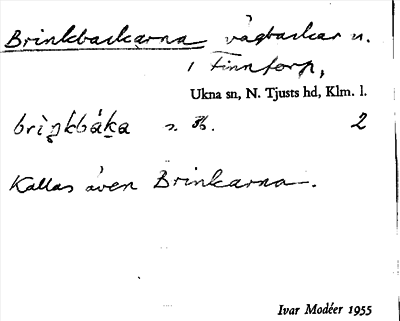 Brinkbackarna vägbackar n.
i Finntorp,
Ukna sn, N. Tjusts hd, Klm. l.
brìŋkbáka s. 2
Kallas även Brinkarna.
Ivar Modéer 1955